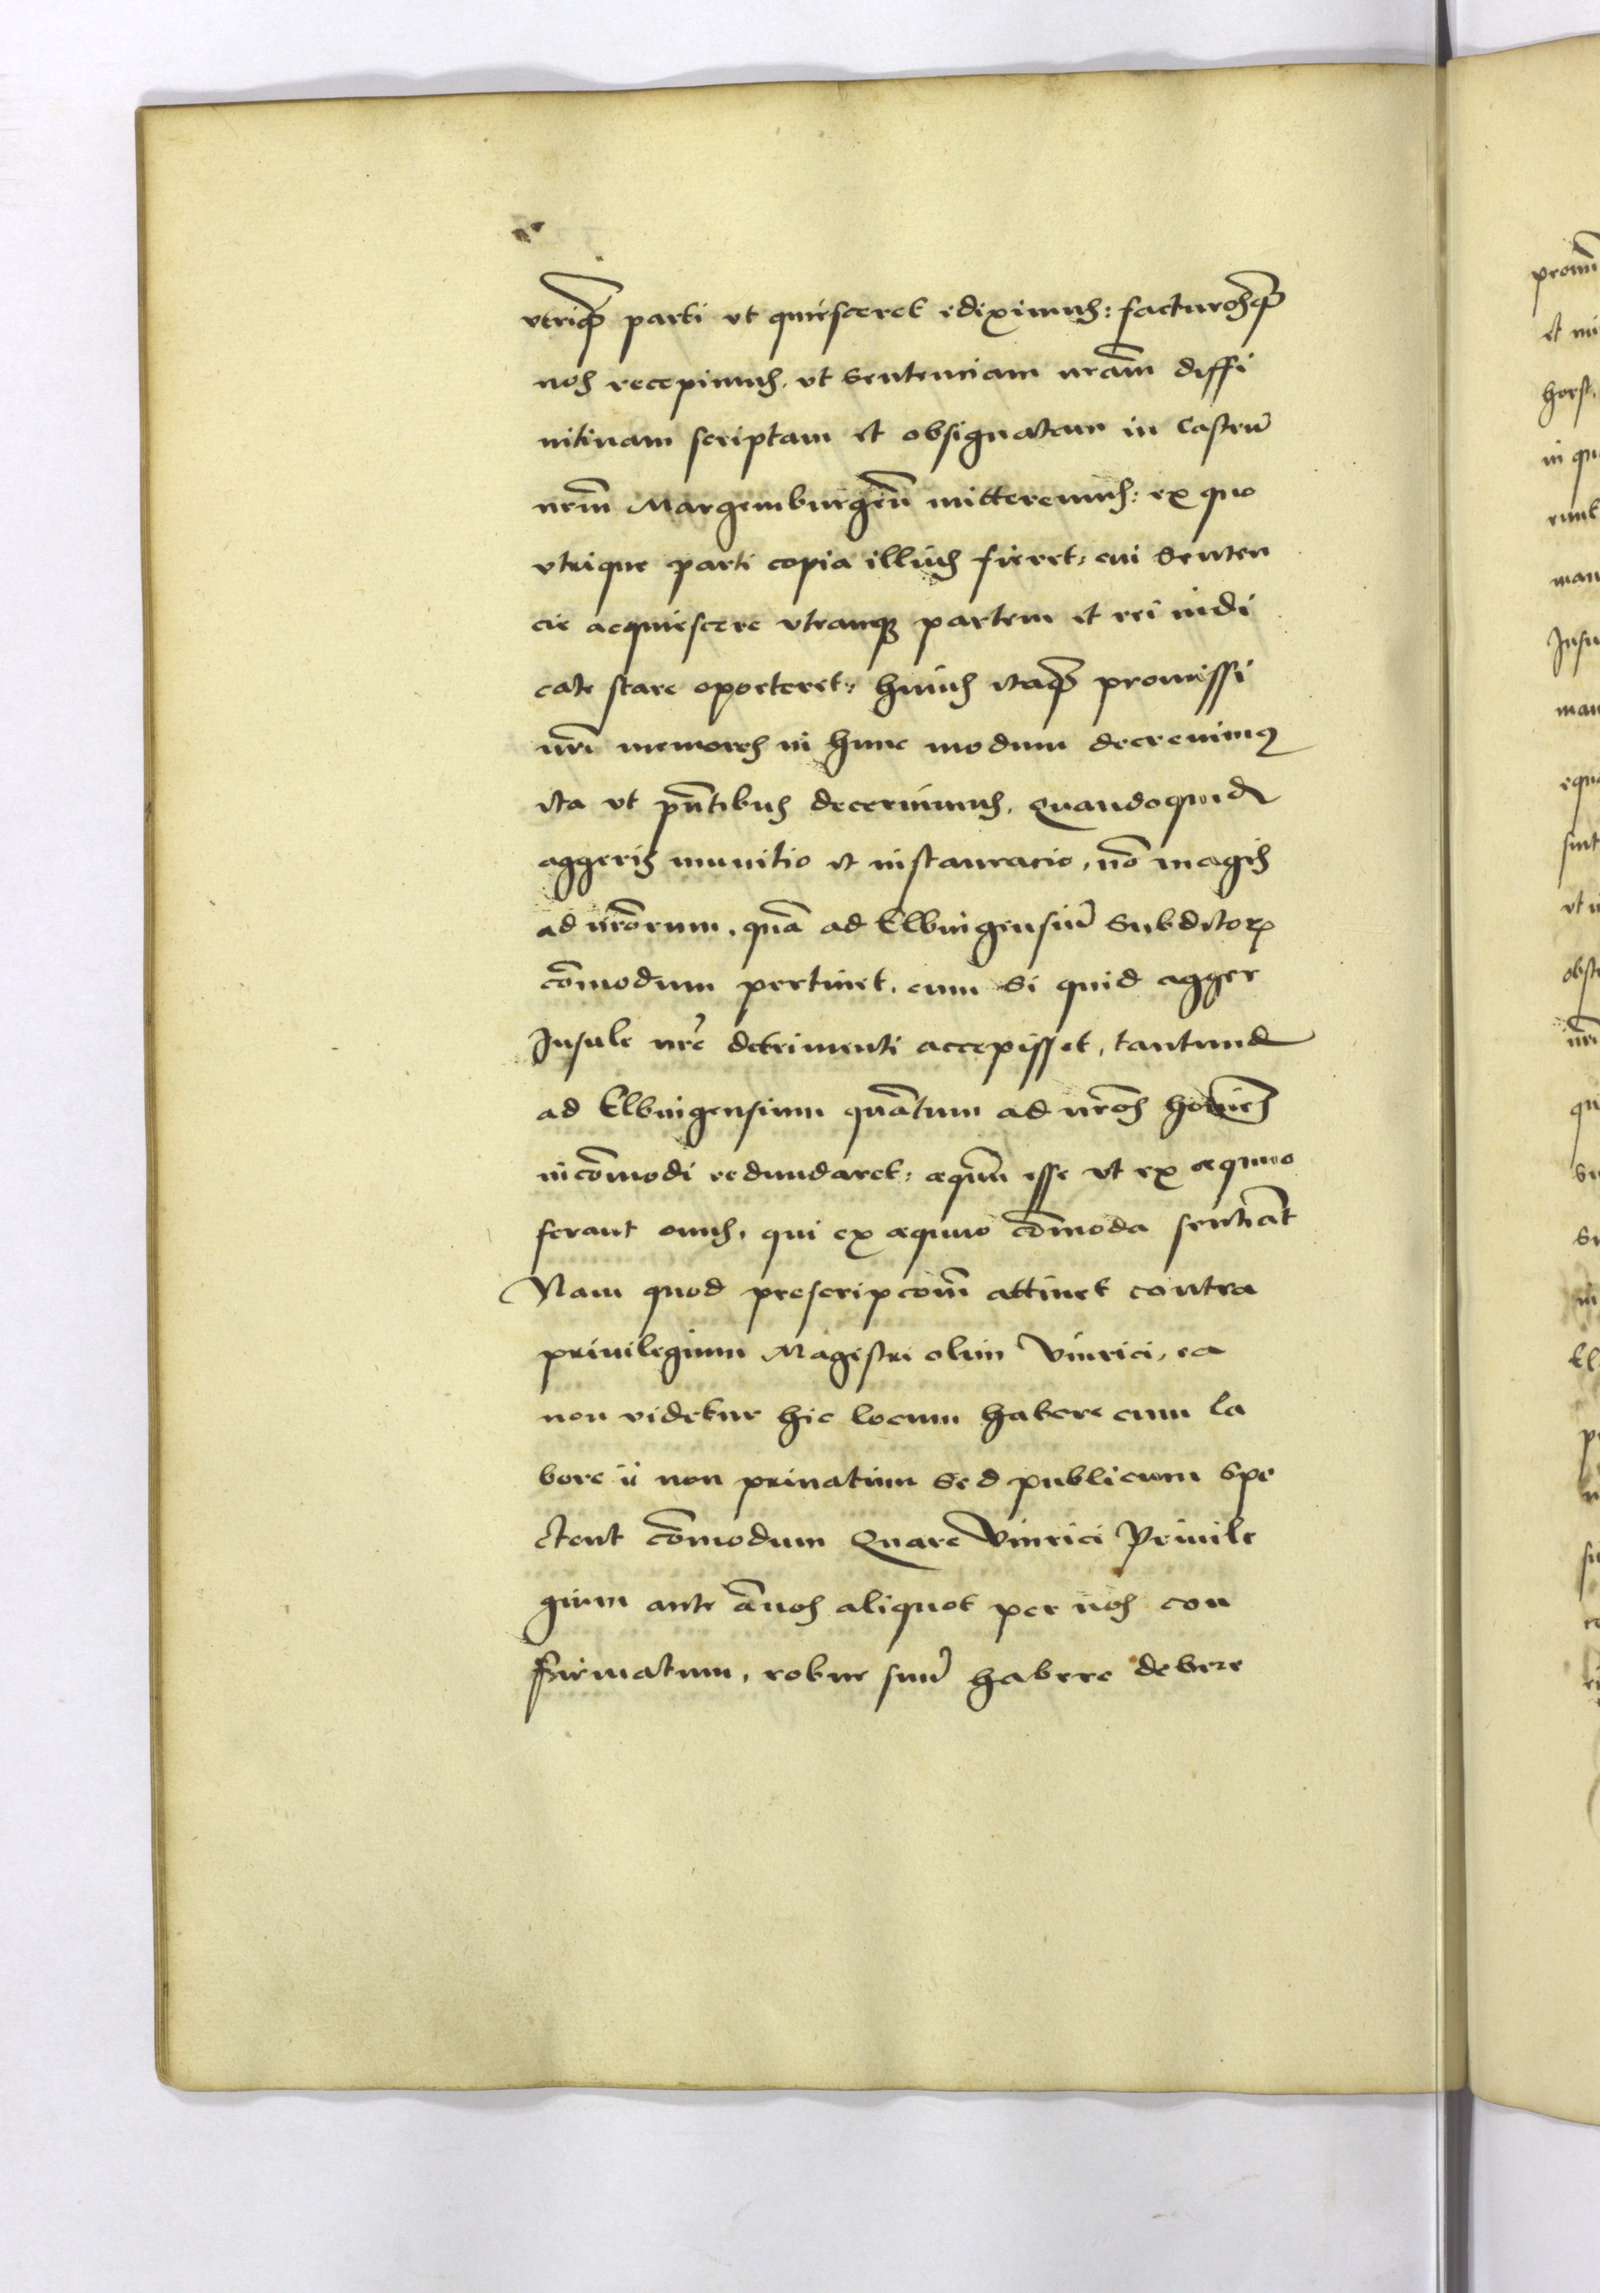 vtriq̃ parti vt quiesceret ediximus: facturosq̃
nos recepimus, vt sentenciam nr̃am diffi
nitiuam scriptam et obsignatam in Castrũ
nrm̃ Margemburgeñ mitteremus: ex quo
vtrique parti copia illius fieret, cui senten
cie acquiescere vtramq; partem et rei iudi
cate stare oporteret: huius itaq̃ promissi
nr̃i memores in hunc modum decreuimꝰ
ita vt pñtibus decernimus, Quandoquidẽ
aggeris munitio et instauracio, nõ magis
ad nr̃orum, quã ad Elbingensiũ subditoꝝ
cõmodum pertinet, cum si quid agger
Insule nr̃e detrimenti accepisset, tantundẽ
ad Elbingensium quãtum ad nr̃os homies
incõmodi redundaret, equũm esse vt ex equuo
ferant onus, qui ex equuo cõmoda senciãt
Nam quod prescripcom̃ attinet contra
priuilegium Magistri olim Vinrici, ea
non videtur hic locum habere cum la
bore ii non priuatum sed publicum spe
ctent cõmodum Quare Vinrici Priuile
gium ante ãnos aliquot per nos con
firmatum, robur suũ habere debere
promi
et
horst,
in qu
eunt
man
Insu
man
equ
sint
obst
nr̃i
qu